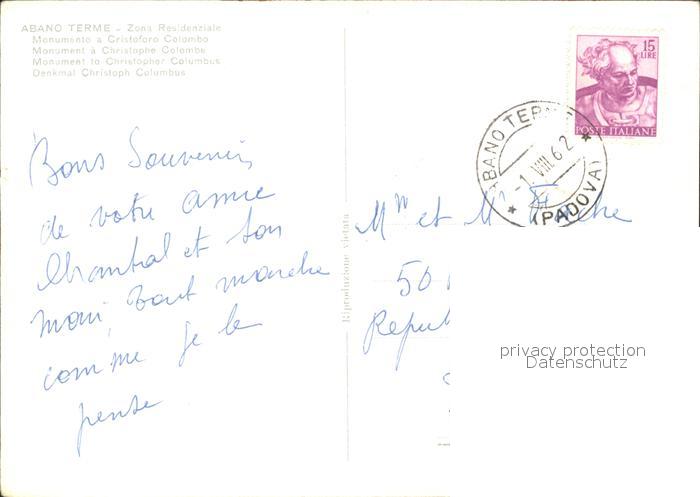 ABANO TERME - Zona Residenziale
Monumento a Cristoforo Colombo
Monument à Christophe Colombe
Monument to Christopher Columbus
Denkmal Christoph Columbus
15
LIRE
POSTE ITALIANE
ABANO TERME
-1 VIII 62
(PADOVA)
Bons Souvenirs
de votre amie
Chantal et son
mari, tout marche
comme je le
pense
Riproduzione vietata
Mm et Mr
50
Repu
privacy protection
Datenschutz